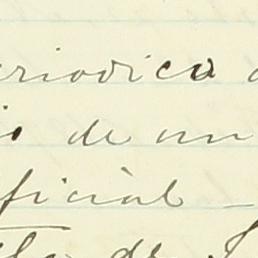 eriodica
io de un
oficial —
de